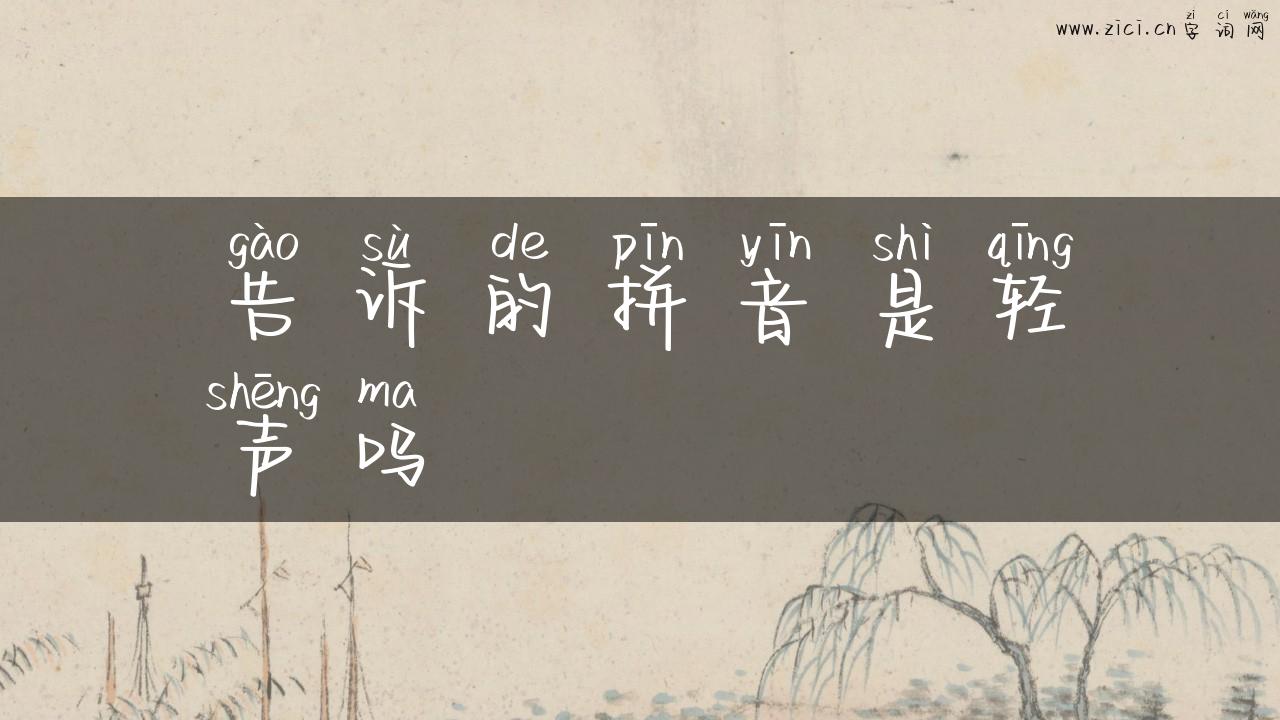 zì cí wǎng
www.zici.cn 字 词 网
gào sù de pīn yīn shì qīng
告 诉 的 拼 音 是 轻
shēng ma
声 吗